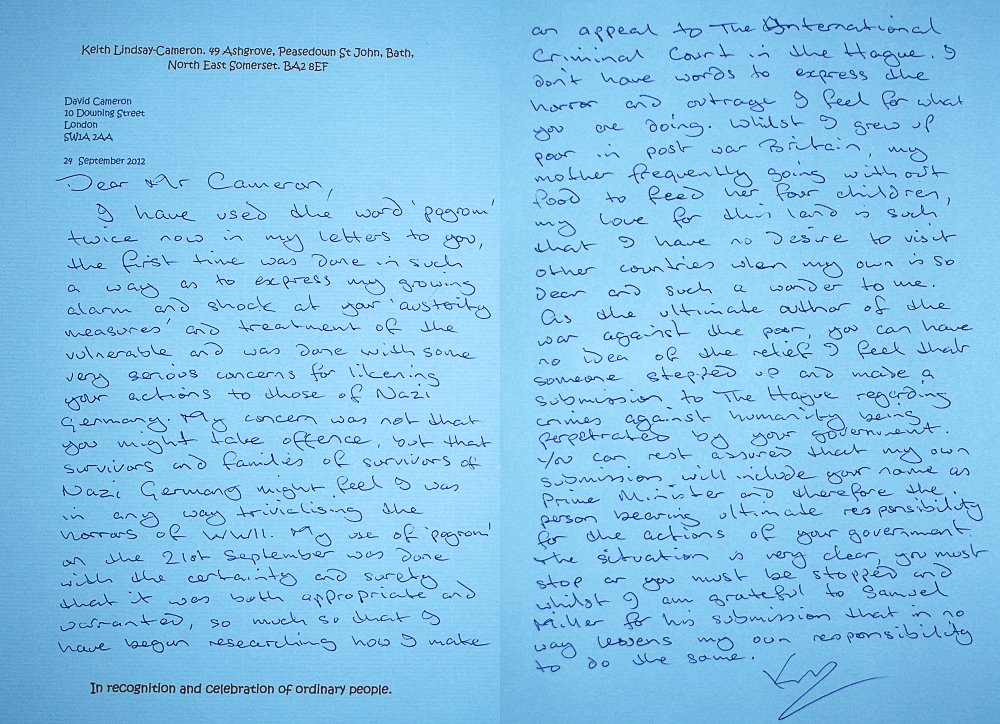 Keith Lindsay-Cameron. 49 Ashgrove, Peasedown St John, Bath,
North East Somerset. BA2 8EF
David Cameron
10 Downing Street
London
SW1A 2AA
24 September 2012
Dear Mr Cameron,
I have used the word 'pogrom'
twice now in my letters to you,
the first time was done in such
a way as to express my growing
alarm and shock at your 'austerity
measures' and treatment of the
vulnerable and was done with some
very serious concerns for likening
your actions to those of Nazi
Germany. My concern was not that
you might take offence, but that
survivors and families of survivors of
Nazi Germany might feel I was
in any way trivialising the
horrors of WWII. My use of 'pogrom'
on the 21st September was done
with the certainty and surety
that it was both appropriate and
warranted, so much so that I
have begun researching how I make
In recognition and celebration of ordinary people.
an appeal to The International
Criminal Court in the Hague. I
don't have words to express the
horror and outrage I feel for what
you are doing. Whilst I grew up
poor in post war Britain, my
mother frequently going without
food to feed her four children,
my love for this land is such
that I have no desire to visit
other countries when my own is so
dear and such a wonder to me.
As the ultimate author of the
war against the poor, you can have
no idea of the relief I feel that
someone stepped up and made a
submission to The Hague regarding
crimes against humanity being
perpetrated by your government.
You can rest assured that my own
submission will include your name as
Prime Minister and therefore the
person bearing ultimate responsibility
for the actions of your government.
The situation is very clear, you must
stop or you must be stopped and
whilst I am grateful to Samuel
Miller for his submission that in no
way lessens my own responsibility
to do the same.